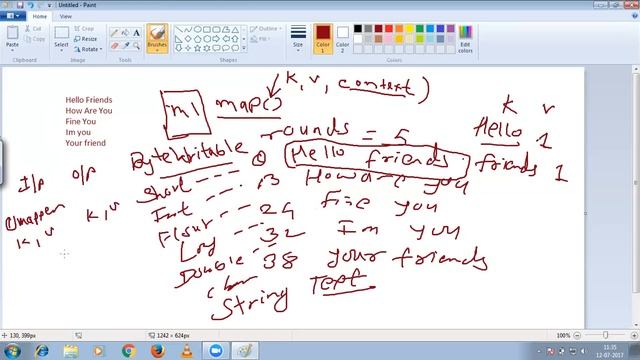 Untitled - Paint
Home
View
Paste
Cut
Copy
Select
Crop
Resize
Rotate
Brushes
Outline
Fill
Size
Color 1
Color 2
Edit colors
Clipboard
Image
Tools
Shapes
Colors
Hello Friends
How Are You
Fine You
Im you
Your friend
K, v, context)
m1 map()
K v
rounds = 5
Hello 1
ByteWritable
Hello friends
friends 1
I/p O/p
Short
13
you
mapper
K, v
Int
24
you
K, v
Float
32
Im you
Long
38
your friends
Double
Char
String Text
130, 399px
1242 × 624px
100%
11:35
12-07-2017